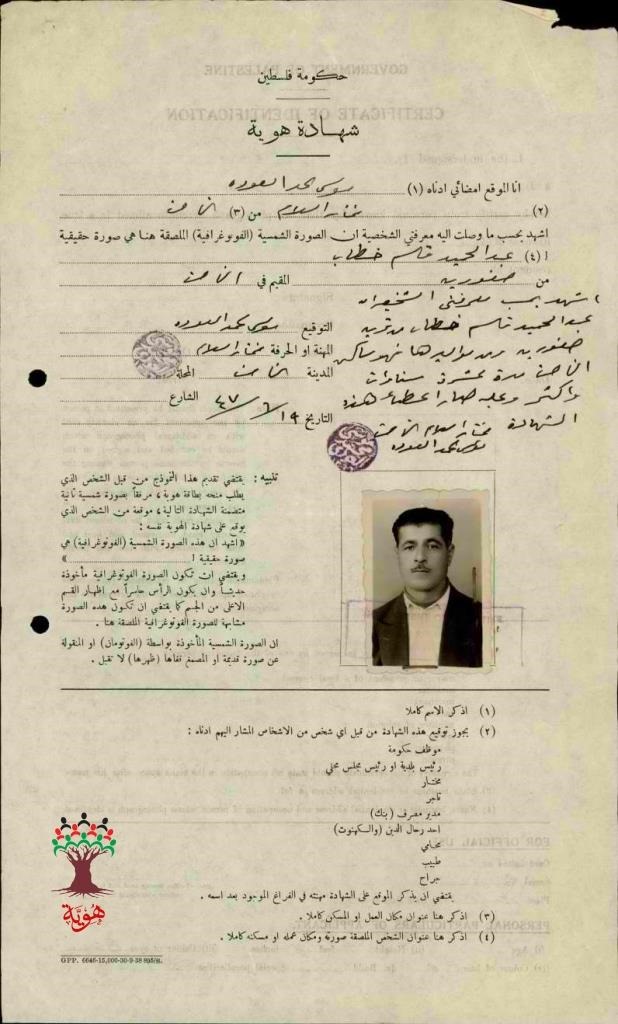 حكومة فلسطين
شهادة هوية
انا الموقع امضائي ادناه (١) موسى محمد العوده
(٢) مختار السلام من (٣) الناصرة
اشهد بحسب ما وصلت اليه معرفتي الشخصية ان الصورة الشمسية (الفوتوغرافية) الملصقة هنا هي صورة حقيقية
ا (٤) عبد الحميد قاسم خطاب
من صفورية المقيم في الناصرة
اشهد بحسب معرفتي الشخصية ان
عبد الحميد قاسم خطاب من قرية
صفورية ومن مواليدها ساكن
الناصرة مدة عشرة سنوات
واكثر وعليه صار اعطاء هذه
الشهادة مختار السلام الناصرة
موسى محمد العوده
التوقيع موسى محمد العوده
المهنة او الحرفة مختار السلام
المدينة الناصرة المحلة
التاريخ ١٩/٦/٤٧ الشارع
تنبيه : يقتضي تقديم هذا النموذج من قبل الشخص الذي
يطلب منحه بطاقة هوية ، مرفقاً بصورة شمسية ثانية
متضمنة الشهادة التالية ، موقعة من الشخص الذي
يوقع على شهادة الهوية نفسه :
« اشهد ان هذه الصورة الشمسية (الفوتوغرافية) هي
صورة حقيقية ا »
ويقتضي ان تكون الصورة الفوتوغرافية مأخوذة
حديثاً وان يكون الرأس حاسراً مع اظهار القسم
الاعلى من الجسم كما يقتضي ان تكون هذه الصورة
مشابهة للصورة الفوتوغرافية الملصقة هنا .
ان الصورة الشمسية المأخوذة بواسطة (الفوتومان) او المنقولة
عن صورة قديمة او المصمغ قفاها (ظهرها) لا تقبل .
(١) اذكر الاسم كاملا
(٢) يجوز توقيع هذه الشهادة من قبل اي شخص من الاشخاص المشار اليهم ادناه :
موظف حكومة
رئيس بلدية او رئيس مجلس محلي
مختار
تاجر
مدير مصرف (بنك)
احد رجال الدين (والكهنوت)
محامي
طبيب
جراح
يقتضي ان يذكر الموقع على الشهادة مهنته في الفراغ الموجود بعد اسمه .
(٣) اذكر هنا عنوان مكان العمل او المسكن كاملا .
(٤) اذكر هنا عنوان الشخص الملصقة صورته ومكان عمله او مسكنه كاملا .
هوية
GPP. 6646-15,000-30-9-38 895/R.